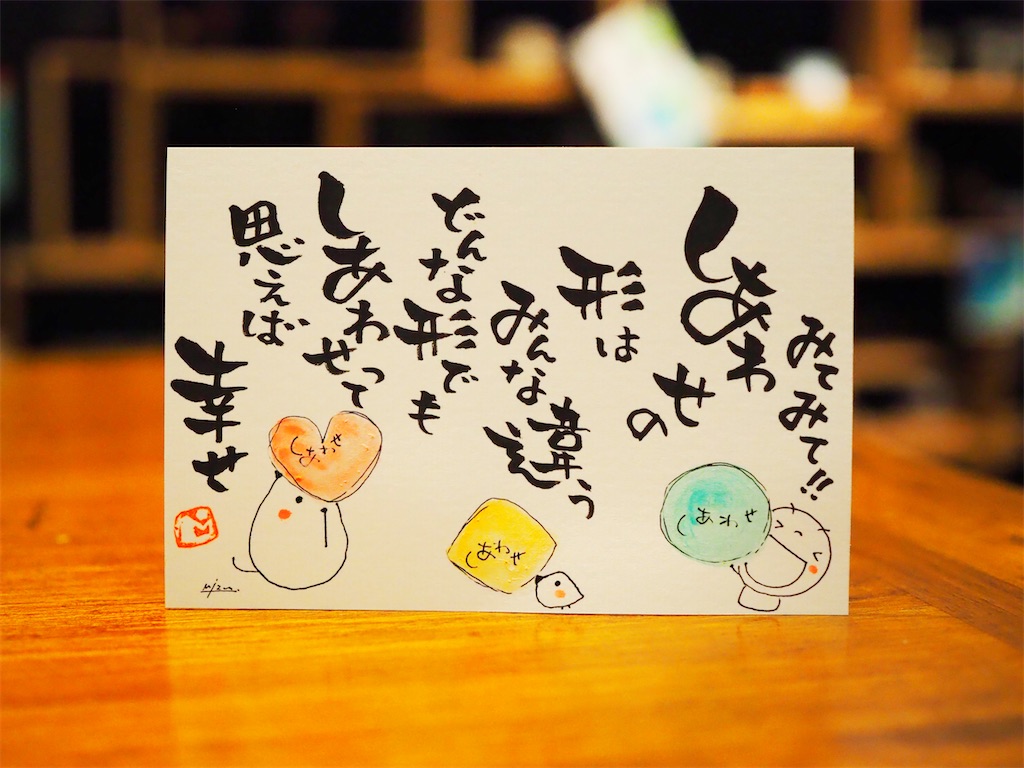 みてみて!!
しあわせの
形は
みんな違う
どんな形でも
しあわせって
思えば
幸せ
しあわせ
しあわせ
しあわせ